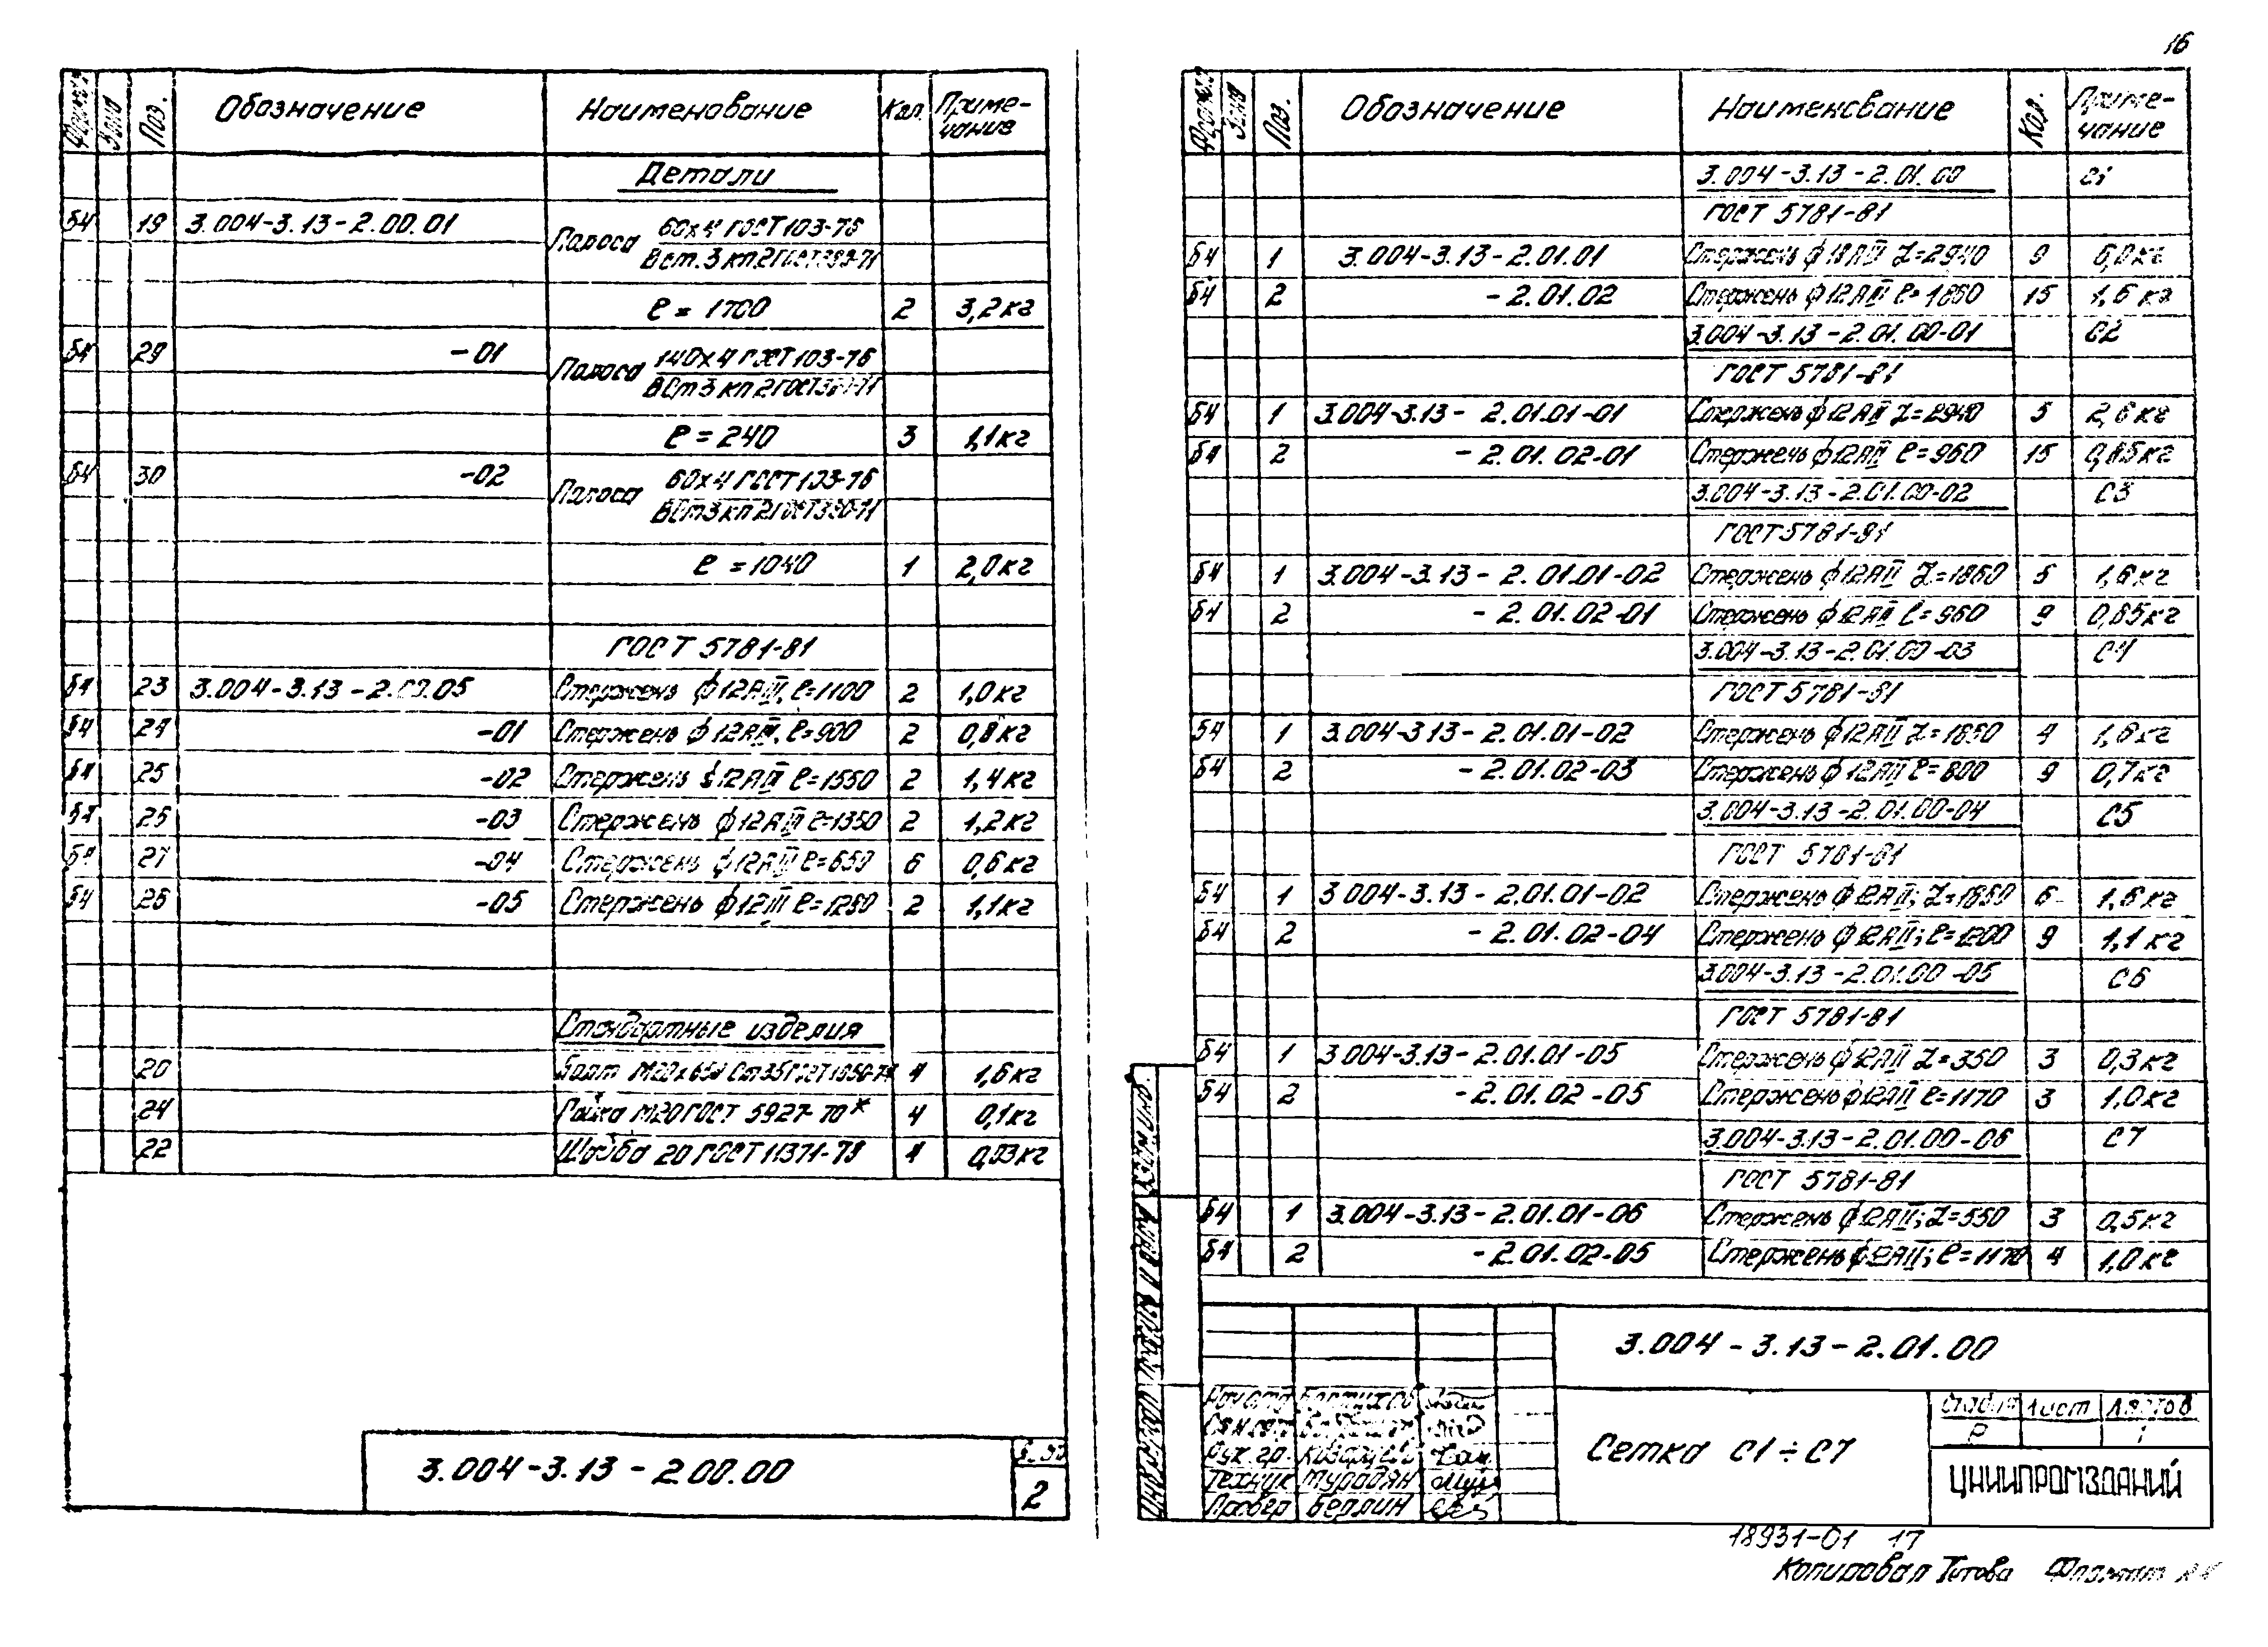 16
Формат Зона Поз. Обозначение Наименование Кол. Приме-
чание
Детали
БЧ 19 3.004-3.13-2.00.01 Полоса 60х4 ГОСТ 103-76
В Ст.3 кп 2 ГОСТ 380-71
ℓ = 1700 2 3,2кг
БЧ 29 -01 Полоса 140х4 ГОСТ 103-76
ВСт3 кп 2 ГОСТ 380-71
ℓ = 240 3 1,1кг
БЧ 30 -02 Полоса 60х4 ГОСТ 103-76
ВСт3 кп 2 ГОСТ 380-71
ℓ = 1040 1 2,0кг
ГОСТ 5781-81
БЧ 23 3.004-3.13-2.00.05 Стержень ф12АIII, ℓ=1100 2 1,0кг
БЧ 24 -01 Стержень ф12АIII, ℓ=900 2 0,8кг
БЧ 25 -02 Стержень ф12АIII ℓ=1550 2 1,4кг
БЧ 26 -03 Стержень ф12АIII ℓ=1350 2 1,2кг
БЧ 27 -04 Стержень ф12АIII ℓ=650 6 0,6кг
БЧ 28 -05 Стержень ф12III ℓ=1280 2 1,1кг
Стандартные изделия
20 Болт М20х650 Ст35 ГОСТ 4 1,6кг
24 Гайка М20 ГОСТ 5927-70* 4 0,1кг
22 Шайба 20 ГОСТ 11371-78 4 0,03кг
3.004-3.13-2.00.00
2
Формат Зона Поз. Обозначение Наименование Кол. Приме-
чание
3.004-3.13-2.01.00 С1
ГОСТ 5781-81
БЧ 1 3.004-3.13-2.01.01 Стержень ф18АIII L=2940 9 6,0кг
БЧ 2 -2.01.02 Стержень ф12АIII ℓ=1860 15 1,6кг
3.004-3.13-2.01.00-01 С2
ГОСТ 5781-81
БЧ 1 3.004-3.13-2.01.01-01 Стержень ф12АIII L=2940 5 2,6кг
БЧ 2 -2.01.02-01 Стержень ф12АIII ℓ=960 15 0,85кг
3.004-3.13-2.01.00-02 С3
ГОСТ 5781-81
БЧ 1 3.004-3.13-2.01.01-02 Стержень ф12АII L=1860 5 1,6кг
БЧ 2 -2.01.02-01 Стержень ф12АII ℓ=960 9 0,85кг
3.004-3.13-2.01.00-03 С4
ГОСТ 5781-81
БЧ 1 3.004-3.13-2.01.01-02 Стержень ф12АII L=1860 4 1,6кг
БЧ 2 -2.01.02-03 Стержень ф12АII ℓ=800 9 0,7кг
3.004-3.13-2.01.00-04 С5
ГОСТ 5781-81
БЧ 1 3.004-3.13-2.01.01-02 Стержень ф12АII; L=1860 6 1,6кг
БЧ 2 -2.01.02-04 Стержень ф12АII; ℓ=1200 9 1,1кг
3.004-3.13-2.01.00-05 С6
ГОСТ 5781-81
БЧ 1 3.004-3.13-2.01.01-05 Стержень ф12АII L=350 3 0,3кг
БЧ 2 -2.01.02-05 Стержень ф12АII ℓ=1170 3 1,0кг
3.004-3.13-2.01.00-06 С7
ГОСТ 5781-81
БЧ 1 3.004-3.13-2.01.01-06 Стержень ф12АII; L=550 3 0,5кг
БЧ 2 -2.01.02-05 Стержень ф12АII; ℓ=1170 4 1,0кг
3.004-3.13-2.01.00
Сетка С1÷С7
Стадия Лист Листов
Р 1
ЦНИИПРОМЗДАНИЙ
Рук. гр.
Техник Мурадян
Провер Берлин
18931-01 17
Копировал Титова Формат